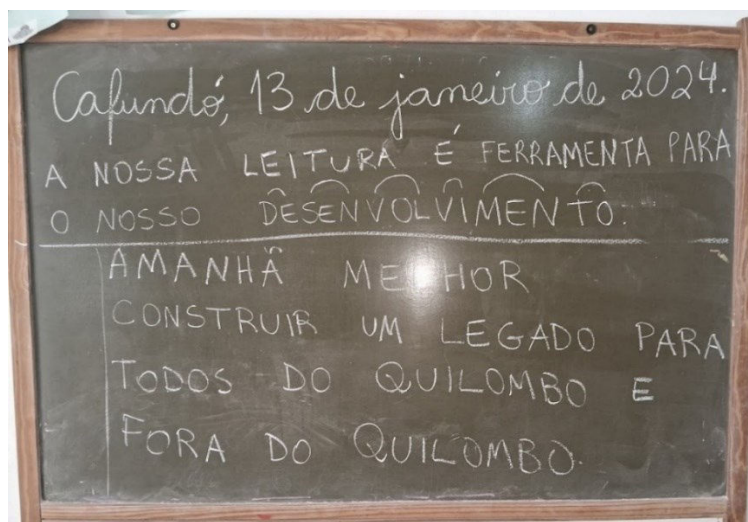 Cafundó, 13 de janeiro de 2024.
A NOSSA LEITURA É FERRAMENTA PARA
O NOSSO DESENVOLVIMENTO.
AMANHÃ MELHOR
CONSTRUIR UM LEGADO PARA
TODOS DO QUILOMBO E
FORA DO QUILOMBO.